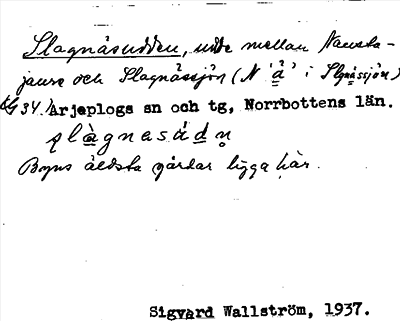 Slagnäsudden, udde mellan Nausta-
jaure och Slagnässjön (N 'å' i Slgnässjön)
34. Arjeplogs sn och tg, Norrbottens län.
slàgnasádn̥
Byns äldsta gårdar ligga här.
Sigvard Wallström, 1937.